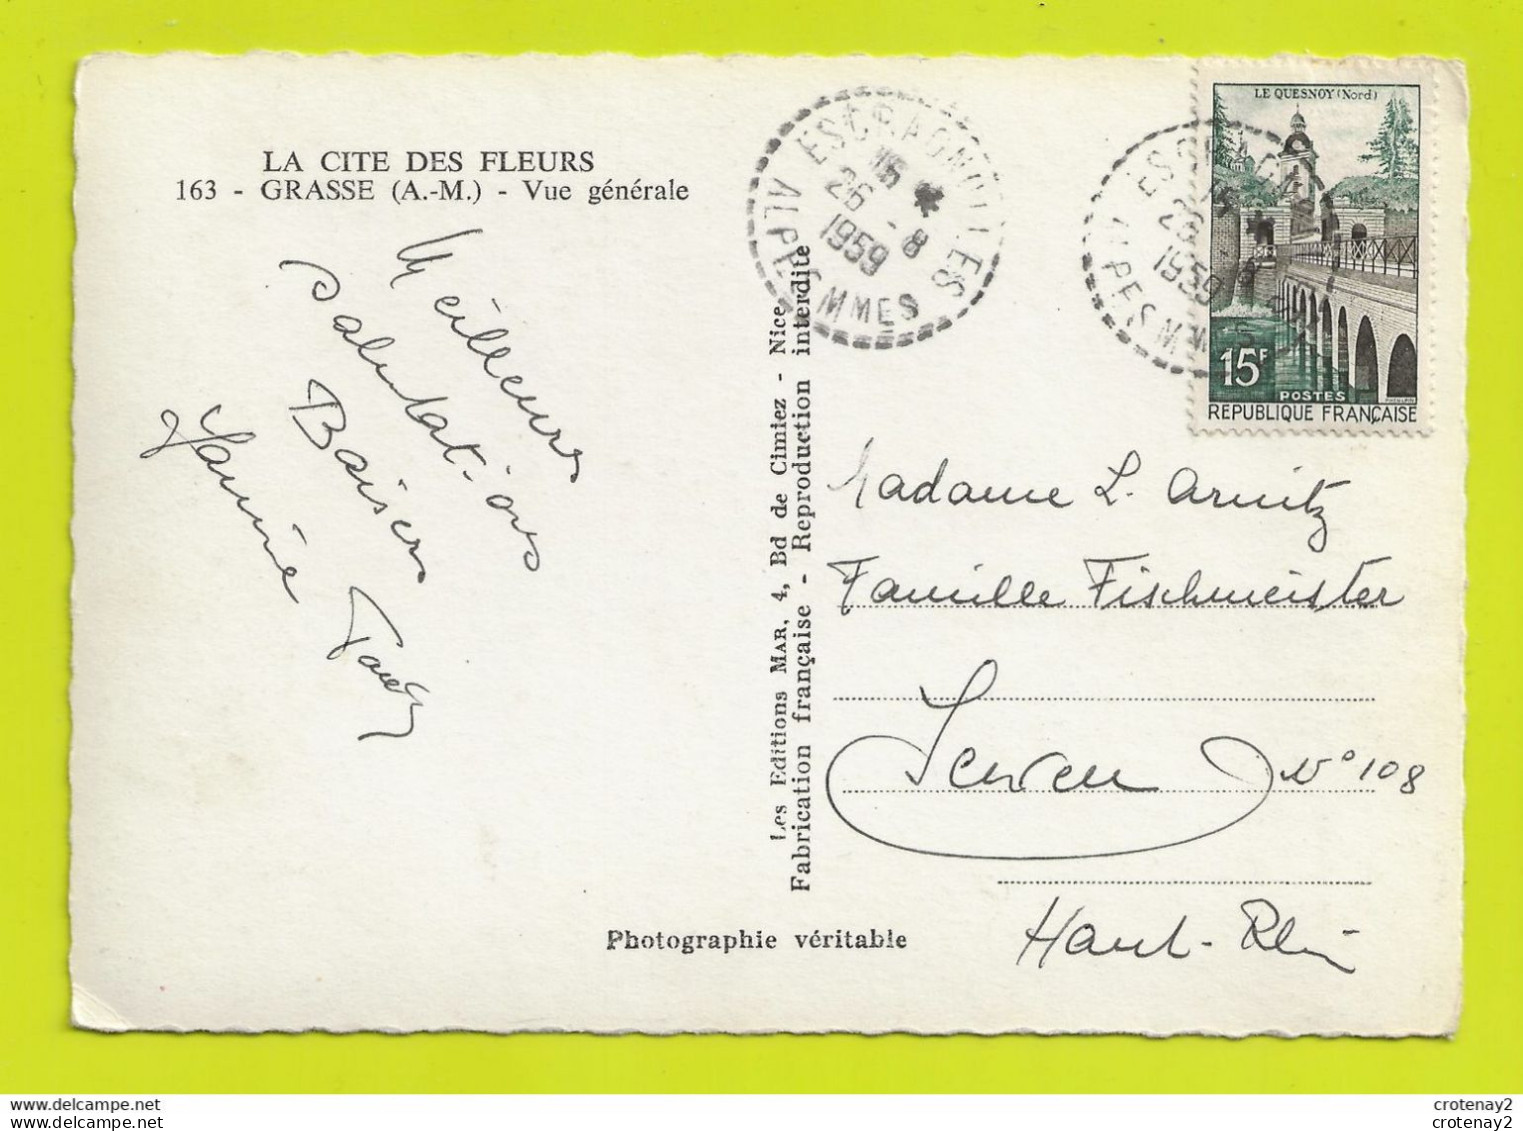 LA CITE DES FLEURS
163 - GRASSE (A.-M.) - Vue générale
Meilleurs
salutations
Baisers
ESCRAGNOLLES
16 *
26 - 8
1959
ALPES MMES
LE QUESNOY (Nord)
15F
POSTES
REPUBLIQUE FRANÇAISE
Les Editions MAR, 4, Bd de Cimiez - Nice
Fabrication française - Reproduction interdite
Madame L. Armitz
Famille Fischmeister
N° 108
Haut-Rhin
Photographie véritable
crotenay2
crotenay2
crotenay2
crotenay2